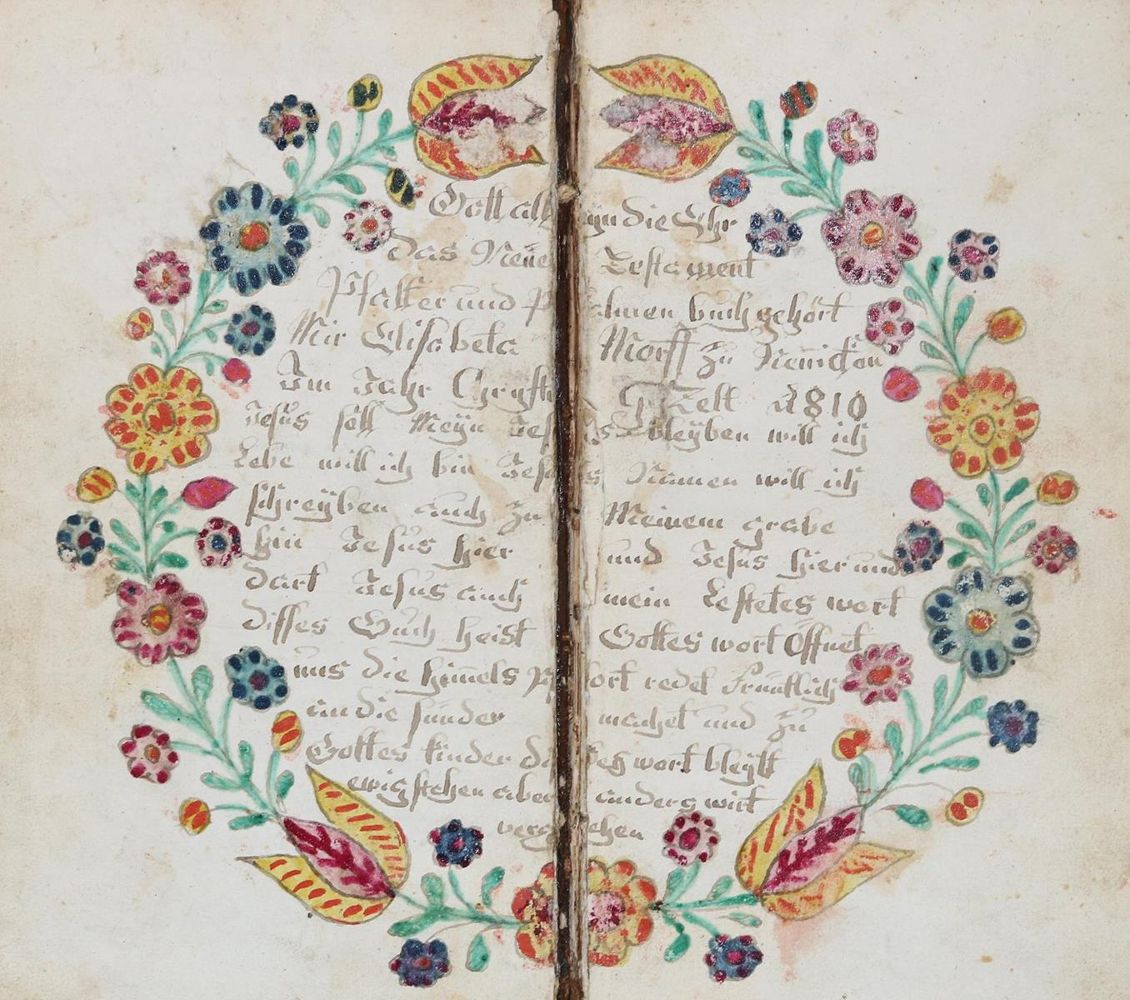 Gott alleyn die Ehr
das Neüe Testament
Psalter und Psalmen buch gehört
Mir Elisabeta Morff zu
Im Jahr Christi Zelt 1810
Jesus soll Meyn Jesus bleyben will ich
Lebe will ich bin Jesus Namen will ich
schreyben auch zu Meinem grabe
hin Jesus hier und Jesus hier und
dart Jesus auch mein Lestetes wort
disses Buch heist Gottes wort Öffnet
uns die himels Pfort redet Früntlich
an die sünder machet uns zu
Gottes kinder dises wort bleybt
ewig stehen aber anders wirt
vergehen